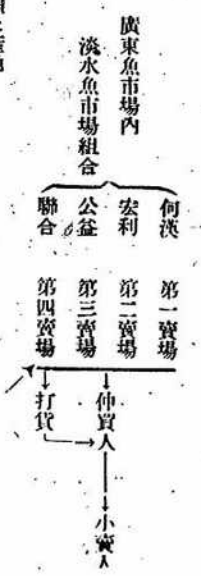 廣東魚市場內
淡水魚市場組合
何漢 第一賣場
宏利 第二賣場
公益 第三賣場
聯合 第四賣場
仲買人
打貨
小賣人